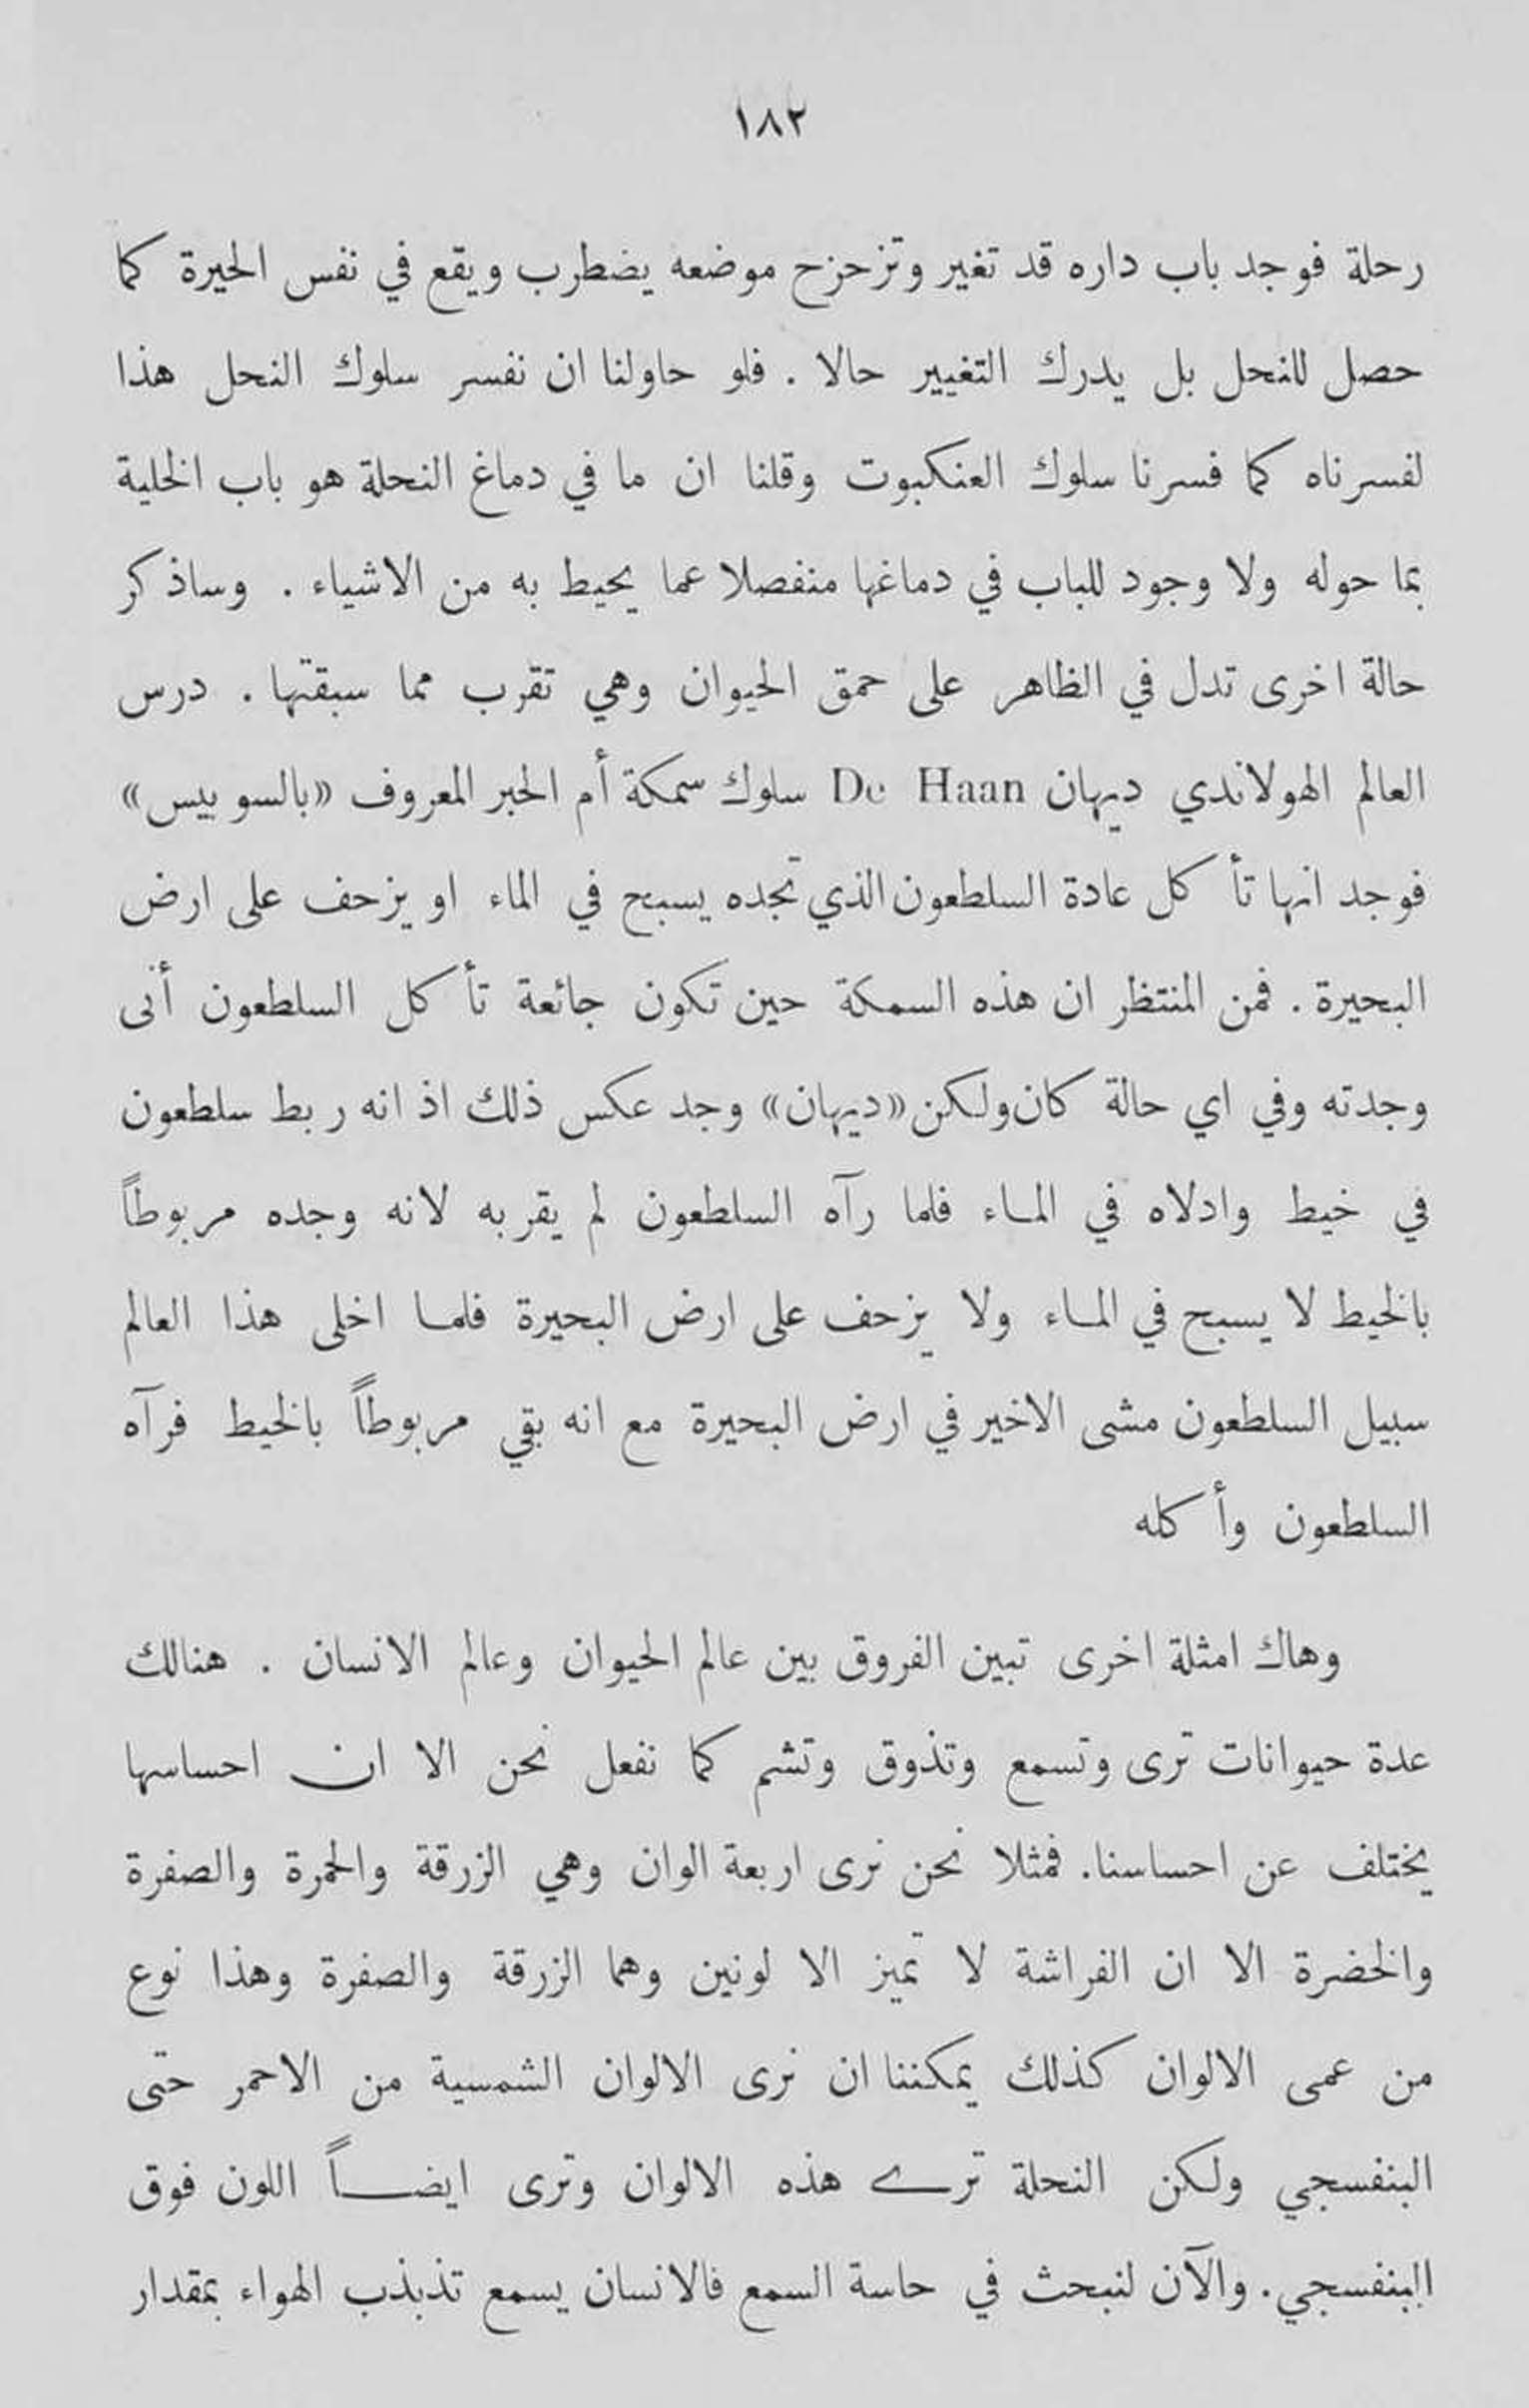 ١٨٢
رحلة فوجد باب داره قد تغير وتزحزح موضعه يضطرب ويقع في نفس الحيرة كما
حصل للنحل بل يدرك التغيير حالا . فلو حاولنا ان نفسر سلوك النحل هذا
لفسرناه كما فسرنا سلوك العنكبوت وقلنا ان ما في دماغ النحلة هو باب الخلية
بما حوله ولا وجود للباب في دماغها منفصلا عما يحيط به من الاشياء . وساذكر
حالة اخرى تدل في الظاهر على حمق الحيوان وهي تقرب مما سبقتها . درس
العالم الهولاندي ديهان De Haan سلوك سمكة أم الحبر المعروف «بالسوبيس»
فوجد انها تأكل عادة السلطعون الذي تجده يسبح في الماء او يزحف على ارض
البحيرة . فمن المنتظر ان هذه السمكة حين تكون جائعة تأكل السلطعون أنى
وجدته وفي اي حالة كان ولكن «ديهان» وجد عكس ذلك اذ انه ربط سلطعون
في خيط وادلاه في الماء فلما رآه السلطعون لم يقربه لانه وجده مربوطاً
بالخيط لا يسبح في الماء ولا يزحف على ارض البحيرة فلما اخلى هذا العالم
سبيل السلطعون مشى الاخير في ارض البحيرة مع انه بقي مربوطاً بالخيط فرآه
السلطعون وأكله
وهاك امثلة اخرى تبين الفروق بين عالم الحيوان وعالم الانسان . هنالك
عدة حيوانات ترى وتسمع وتذوق وتشم كما نفعل نحن الا ان احساسها
يختلف عن احساسنا. فمثلا نحن نرى اربعة الوان وهي الزرقة والحمرة والصفرة
والخضرة الا ان الفراشة لا تميز الا لونين وهما الزرقة والصفرة وهذا نوع
من عمى الالوان كذلك يمكننا ان نرى الالوان الشمسية من الاحمر حتى
البنفسجي ولكن النحلة ترى هذه الالوان وترى ايضاً اللون فوق
البنفسجي. والآن لنبحث في حاسة السمع فالانسان يسمع تذبذب الهواء بمقدار